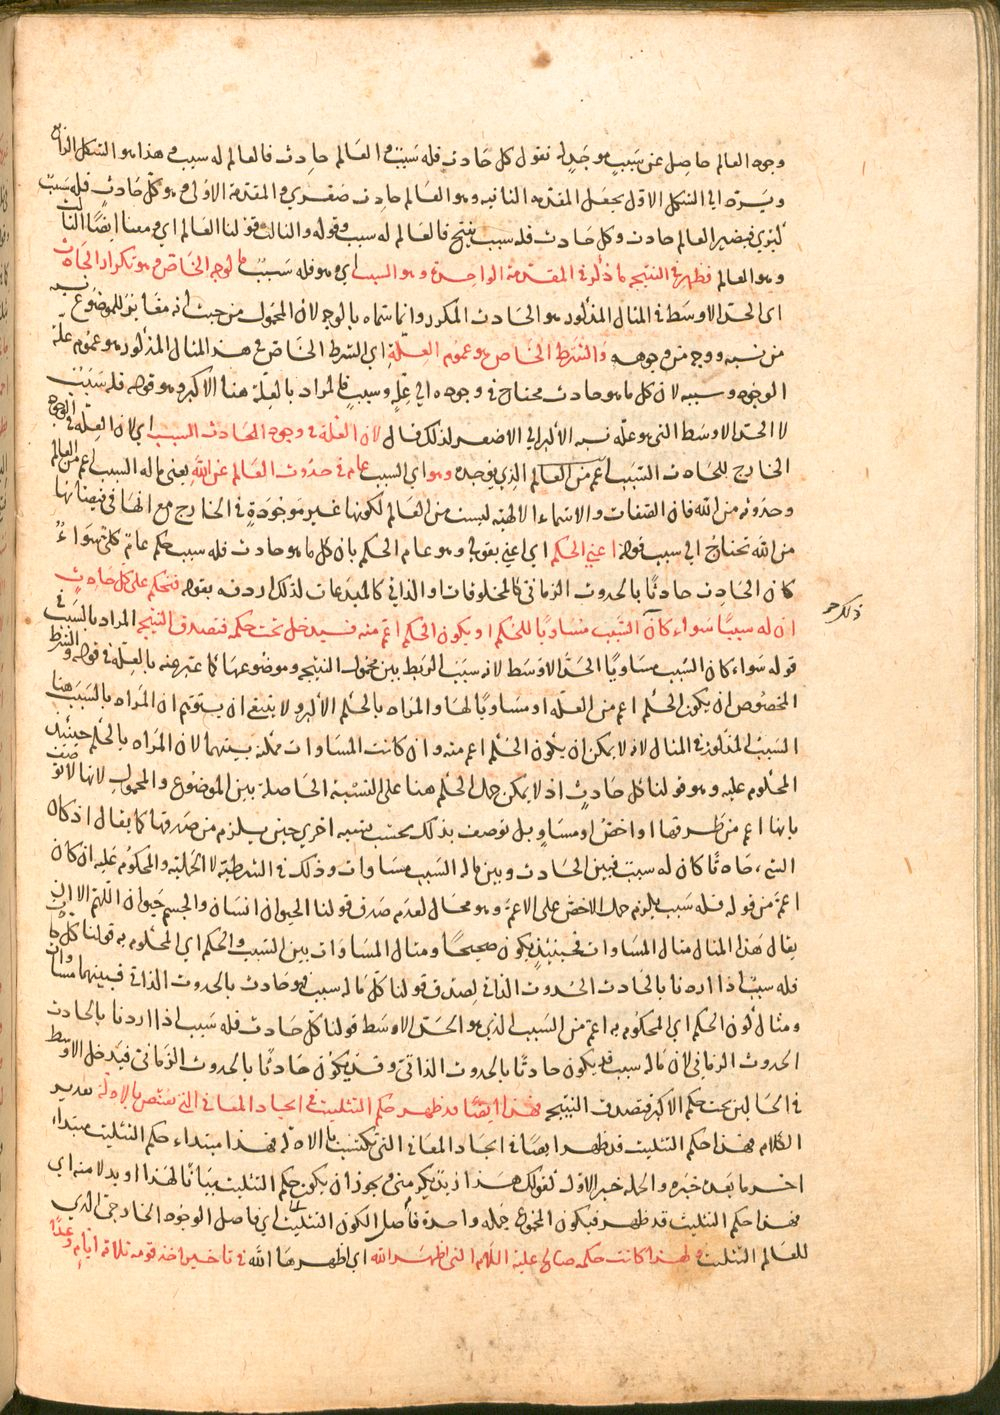 وجود العالم حاصل عن سبب موجد له نقول كل حادث فله سبب و العالم حادث فالعالم له سبب و هذا هو الشكل الرابع
ويرد الى الشكل الاول بجعل المقدمة الثانية وهو العالم حادث صغرى و المقدمة الاولى وهو كل حادث فله سبب
كبرى فيصير العالم حادث وكل حادث فله سبب ينتج فالعالم له سبب وقوله والثالث قولنا العالم اي ومعنا ايضا الثالث
وهو العالم فظهر في النتيجة ما ذكر في المقدمة الواحدة وهو السبب اي وهو فله سبب فالوجه الخاص هو تكرار الحادث
اى الحد الاوسط في المثال المذكور هو الحادث المكرر وانما سماه بالوجه لان المحمول من حيث انه مغاير للموضوع نسبة
من نسبه ووجه من وجوهه والشرط الخاص هو عموم العلة اي الشرط الخاص في هذا المثال المذكور هو عموم علة
الوجود وسببه لان كل ما هو حادث محتاج في وجوده الى علة وسبب فالمراد بالعلة هنا الاكبر وهو قوله فله سبب
لا الحد الاوسط الذي هو علة نسبة الأكبر الى الاصغر لذلك قال لان العلة في وجود الحادث السبب اي لان العلة في الوجود
الخارج للحادث السبب اعم من العالم الذي يوجده وهو اي السبب عام في حدوث العالم عن الله يعني ما له السبب اعم من العالم
وحدوثه من الله فان الصفات والاسماء الالهية ليست من العالم لكونها غير موجودة في الخارج مع انها في فيضانها
من الله تحتاج الى سبب قوله اعني الحكم اي اعني بقولي وهو عام الحكم بان كل ما هو حادث فله سبب حكم عام كلي سواء
كان الحادث حادثا بالحدوث الزماني كالمخلوقات او الذاتي كالمبدعات لذلك اردفه بقوله فنحكم على كل حادث
ان له سببا سواء كان السبب مساويا للحكم او يكون الحكم اعم منه فيدخل تحت حكمه فتصدق النتيجة المراد بالسبب في
ذلك
قوله سواء كان السبب مساويا الحد الاوسط لانه سبب الربط بين محمول النتيجة وموضوعها كما عبر عنه بالعلة في قوله والشرط
المخصوص ان يكون الحكم اعم من العلة او مساويا لها والمراد بالحكم الأكبر ولا ينبغي ان يتوهم ان المراد بالسبب هنا
السبب المذكور في المثال لانه لا يمكن ان يكون الحكم اعم منه وان كانت المساوات ممكنة بينهما لان المراد بالحكم حينئذ
المحكوم عليه وهو قولنا كل حادث اذ لا يمكن حمل الحكم هنا على النسبة الحاصلة بين الموضوع والمحمول لانها لا توصف
بانها اعم من طرفها او اخص او مساو بل توصف بذلك بحسب نسبة اخرى حين يلزم من صدقها كما يقال اذ كان
الشيء حادثا كان له سبب فبين الحادث وبين ما له السبب مساوات وذلك في الشرطية لا الحملية والمحكوم عليه ان كان
اعم من قوله فله سبب يلزم حمل الاخص على الاعم وهو محال لعدم صدق قولنا الحيوان انسان والجسم حيوان اللهم الا ان
يقال هذا المثال مثال المساوات فحينئذ يكون صحيحا ومثال المساوات بين السبب والحكم اي المحكوم به قولنا كل حادث
فله سبب اذا اردنا بالحادث الحدوث الذاتي لصدق قولنا كل ما له سبب فهو حادث بالحدوث الذاتي فبينهما مساوات
ومثال كون الحكم اي المحكوم به اعم من السبب الذي هو الحد الاوسط قولنا كل حادث فله سبب اذا اردنا بالحادث
الحدوث الزماني لان ما له سبب قد يكون حادثا بالحدوث الذاتي وقد يكون حادثا بالحدوث الزماني فيدخل الاوسط
في الحالين تحت حكم الاكبر فتصدق النتيجة فهذا ايضا قد ظهر حكم التثليث في ايجاد المعاني التي تقتنص بالادلة تقدير
الكلام فهذا حكم التثليث قد ظهر ايضا في ايجاد المعاني التي تكتسب بالادلة فهذا مبتداء حكم التثليث مبتداء
اخر ما بعده خبره والجملة خبر الاول كقولك هذا زيد يكرمني ويجوز ان يكون حكم التثليث بيانا لهذا او بدلا منه اي
فهذا حكم التثليث قد ظهر فيكون المجموع جملة واحدة فاصل الكون التثليث اي فاصل الوجود الخارجي الذي
للعالم التثليث ولهذا كانت حكمة صالح عليه السلام التي اظهر الله اي اظهرها الله في تاخير اخذ قومه ثلاثة ايام وعدا